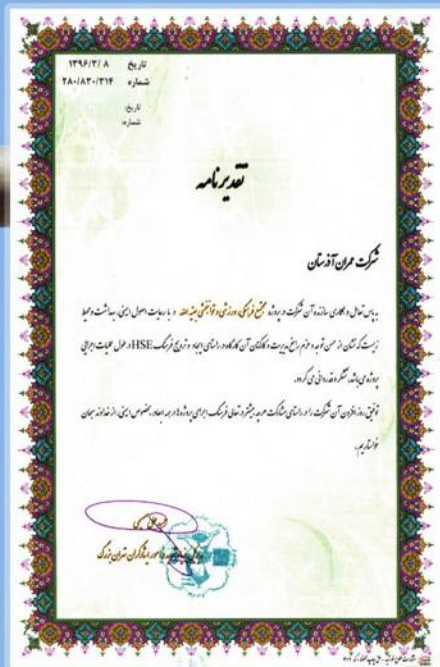 تاریخ ۱۳۹۶/۳/۸
شماره ۲۸۰/۸۳۰/۳۱۴
تاریخ:
شماره:
تقدیرنامه
شرکت عمران آذرستان
به پاس تعامل و همکاری سازنده آن شرکت در پروژه مجتمع فرهنگی، ورزشی و توانبخشی بقیه الله و با رعایت اصول ایمنی، بهداشت و محیط
زیست که نشان از حسن توجه و عزم راسخ مدیریت و کارکنان آن کارگاه در راستای ایجاد و ترویج فرهنگ HSE در طول عملیات اجرایی
پروژه می باشد، تشکر و قدردانی می گردد.
توفیق روز افزون آن شرکت را در راستای مشارکت هر چه بیشتر در تعالی فرهنگ اجرای پروژه ها در همه ابعاد، بخصوص ایمنی، از خداوند سبحان
خواستاریم.
امور ایثارگران تهران بزرگ